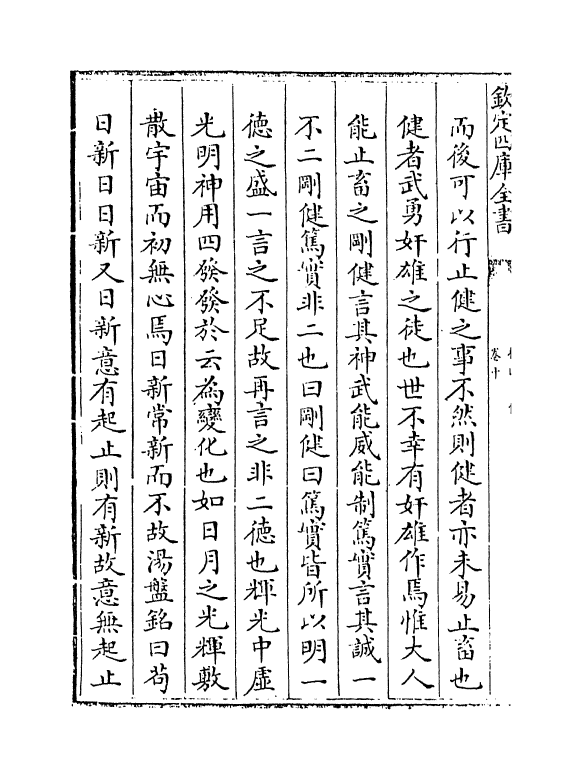 欽定四庫全書
卷十
而後可以行止健之事不然則健者亦未易止畜也
健者武勇奸雄之徒也世不幸有奸雄作焉惟大人
能止畜之剛健言其神武能威能制篤實言其誠一
不二剛健篤實非二也曰剛健曰篤實皆所以明一
德之盛一言之不足故再言之非二德也輝光中虛
光明神用四發發於云為變化也如日月之光輝敷
散宇宙而初無心焉日新常新而不故湯盤銘曰苟
日新日日新又日新意有起止則有新故意無起止